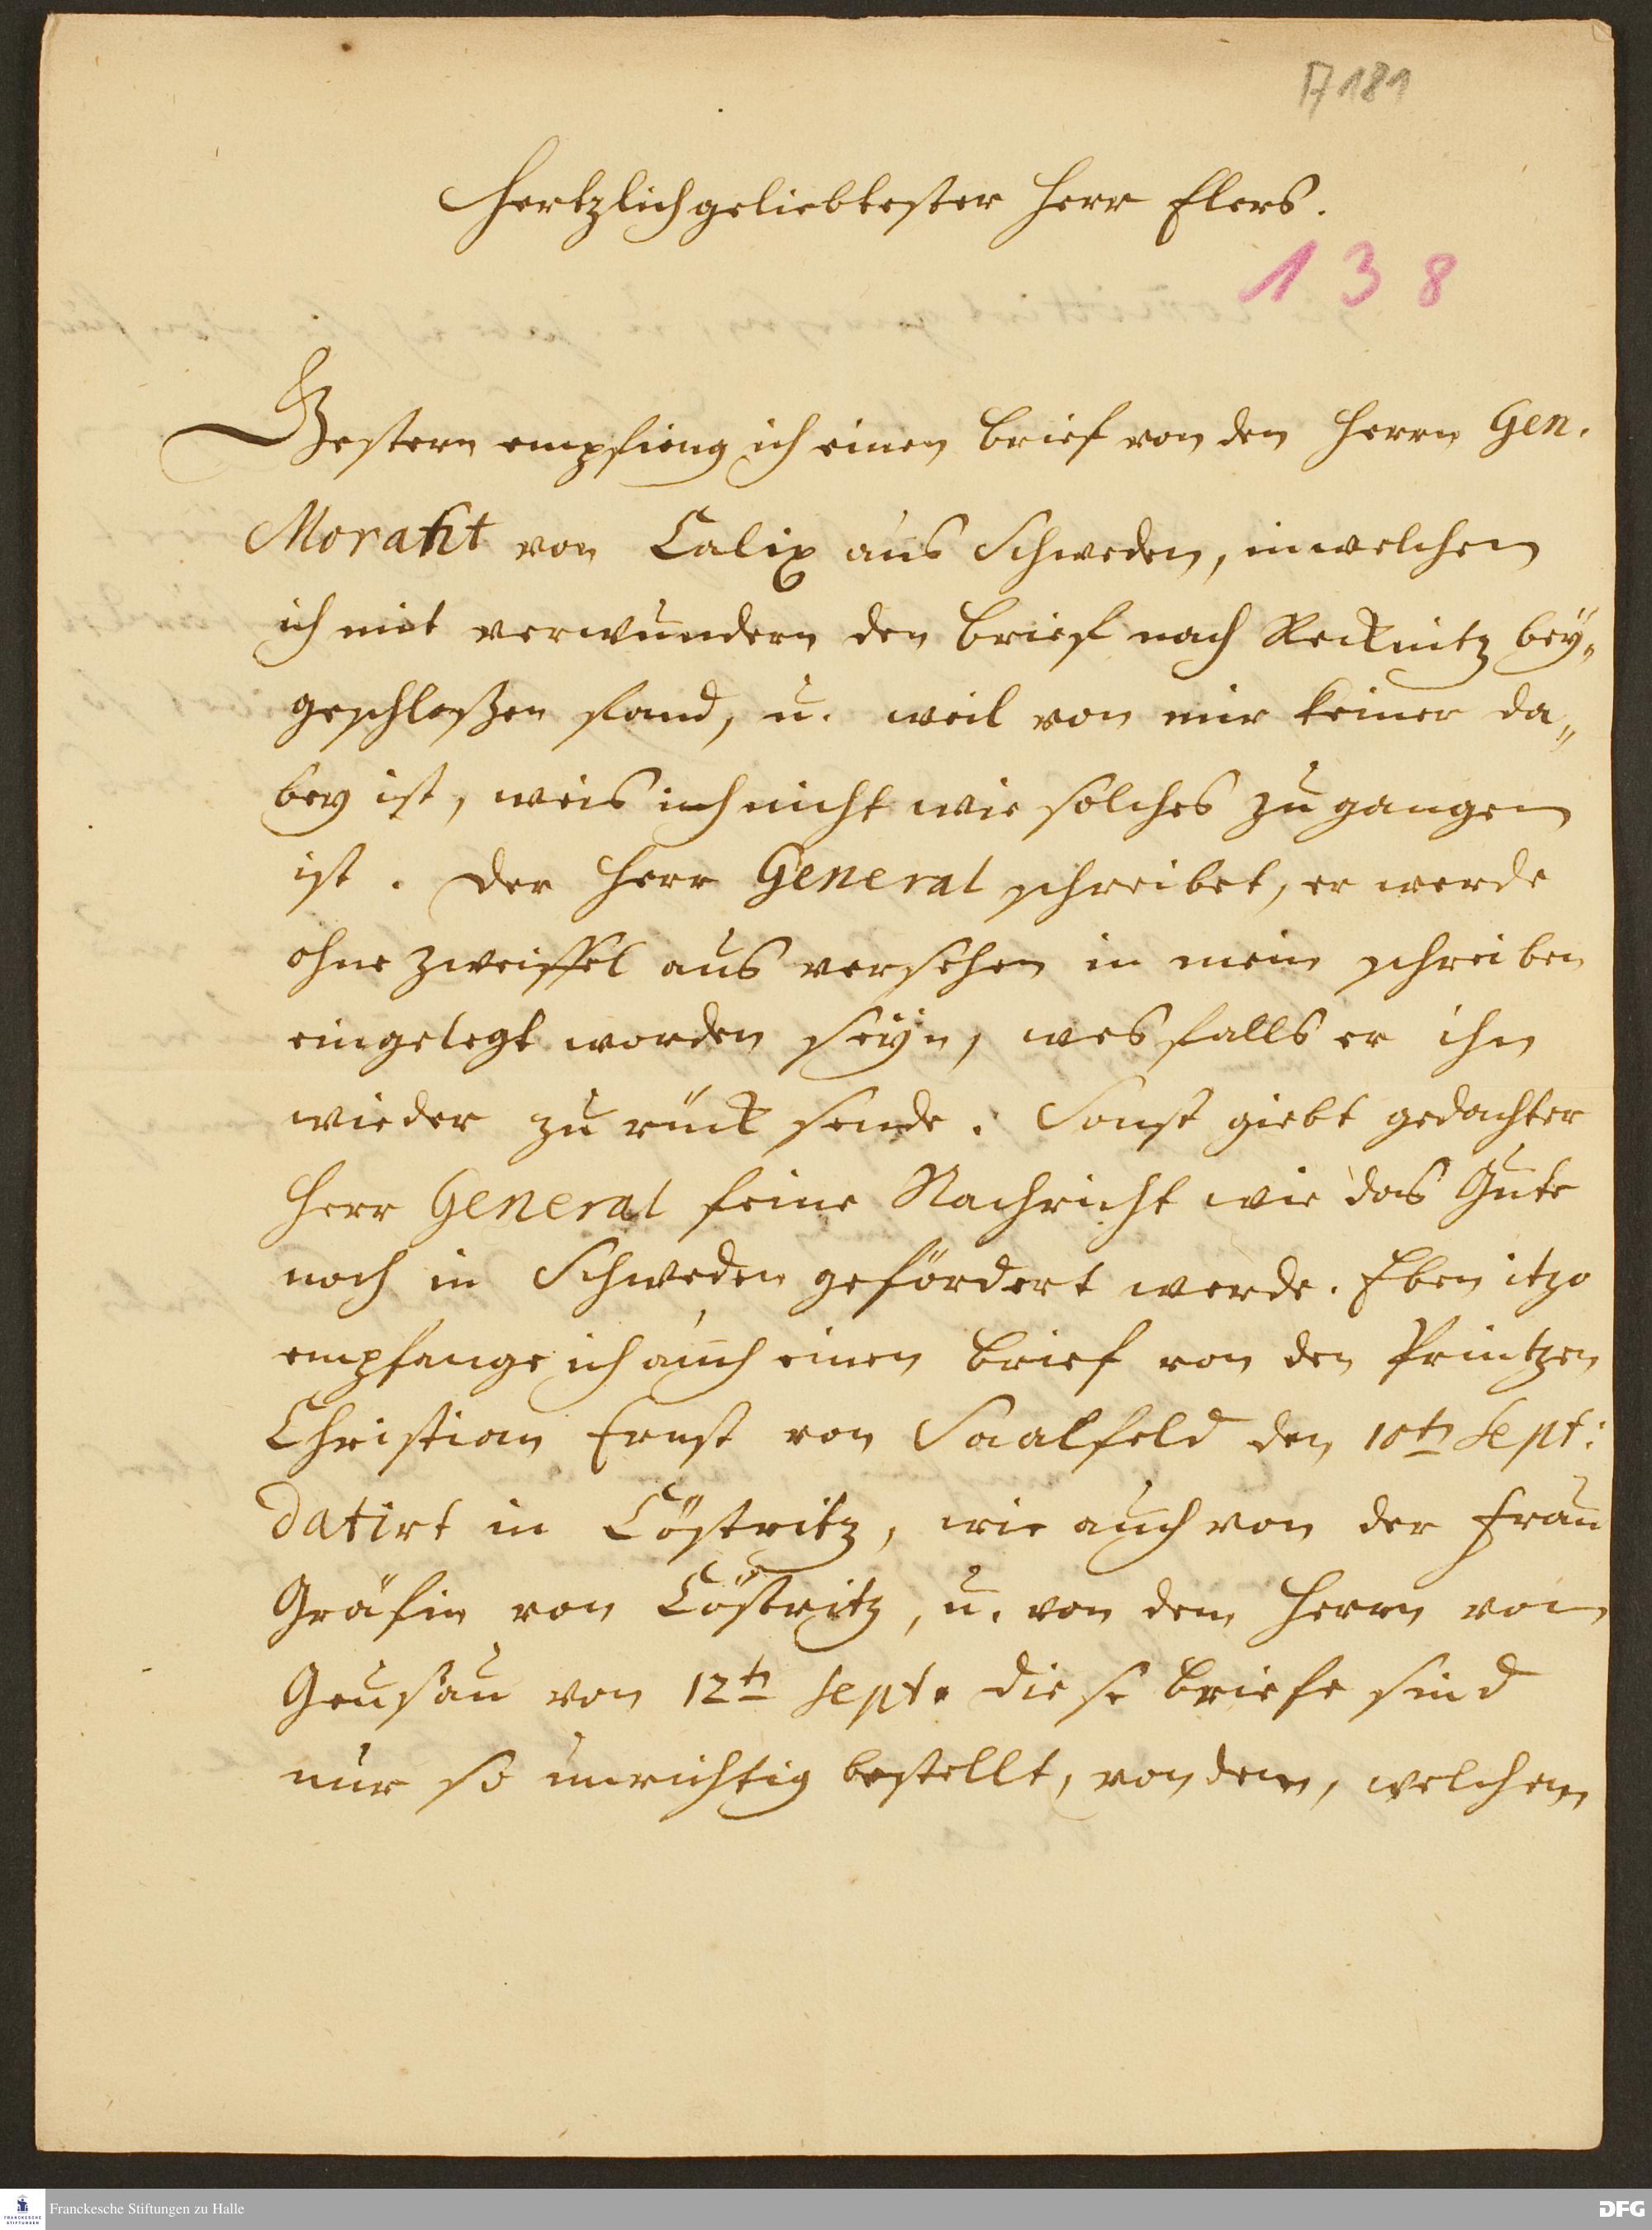 A 181
Hertzlichgeliebtester Herr Elers.
138
Gestern empfieng ich einen Brief von den Herrn Gen.
von Calix aus Schweden, in welchen
ich mit verwundern den Brief nach Recknitz bey„
geschloßen fand, u. weil von mir keiner da„
bey ist, weis ich nicht wie solches zu gangen
ist. Der Herr General schreibet, er werde
ohne Zweiffel aus versehen in mein schreiben
eingelegt worden seÿn, wesfalls er ihn
wieder zu rück sende. Sonst giebt gedachter
Herr General feine Nachricht wie das Gute
noch in Schweden gefördert werde. Eben itzo
empfange ich auch einen Brief von den Printzen
Christian Ernst von Saalfeld den 10tn Sept:
datirt in Cöstritz, wie auch von der Frau
Gräfin von Cöstritz, u. von dem Herrn von
Geusau von 12tn Sept. Diese Briefe sind
nur so unrichtig bestellt, von dem, welchem
Franckesche Stiftungen zu Halle
FRANCKESCHE STIFTUNGEN
DFG